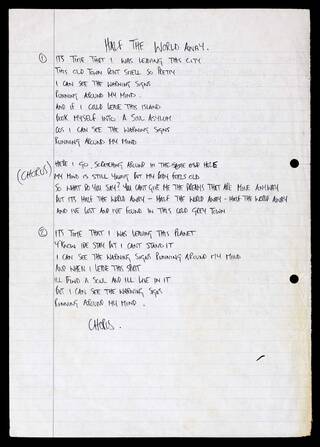 HALF THE WORLD AWAY.
① ITS TIME THAT I WAS LEAVING THIS CITY
THIS OLD TOWN DONT SMELL SO PRETTY
I CAN SEE THE WARNING SIGNS
RUNNING AROUND MY MIND
AND IF I COULD LEAVE THIS ISLAND
BOOK MYSELF INTO A SOUL ASYLUM
COS I CAN SEE THE WARNING SIGNS
RUNNING AROUND MY MIND
(CHORUS) HERE I GO, SCRATCHING AROUND IN THE SAME OLD HOLE
MY MIND IS STILL YOUNG BUT MY BODY FEELS OLD
SO WHAT DO YOU SAY? YOU CANT GIVE ME THE DREAMS THAT ARE MINE ANYWAY
BUT ITS HALF THE WORLD AWAY - HALF THE WORLD AWAY - HALF THE WORLD AWAY
AND IVE LOST AND IVE FOUND IN THIS COLD GREY TOWN
② ITS TIME THAT I WAS LEAVING THIS PLANET
Y'KNOW IDE STAY BUT I CANT STAND IT
I CAN SEE THE WARNING SIGNS RUNNING AROUND MY MIND
AND WHEN I LEAVE THIS
ILL FIND A SOUL AND ILL LIVE IN IT
BUT I CAN SEE THE WARNING SIGNS
RUNNING AROUND MY MIND.
CHORUS.